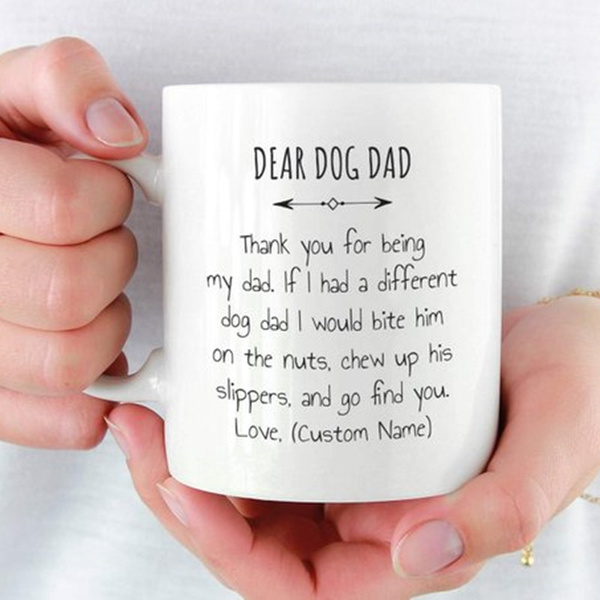 DEAR DOG DAD
Thank you for being
my dad. If I had a different
dog dad I would bite him
on the nuts, chew up his
slippers, and go find you.
Love, (Custom Name)